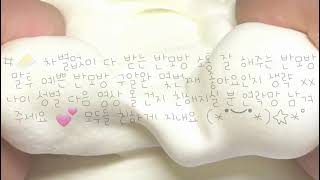 #🍙 차별없이 다 받는 반모방 소통 잘 해주는 반모방
말투 예쁜 반모방 구일완 몇번째 좋아요인지 생략 xx
나이 성별 다음 영상 올 런지 친해지실 분 연락망 남겨
주세요 💕 모두들 친하게 지내요 (*˘︶˘*)☆*˚